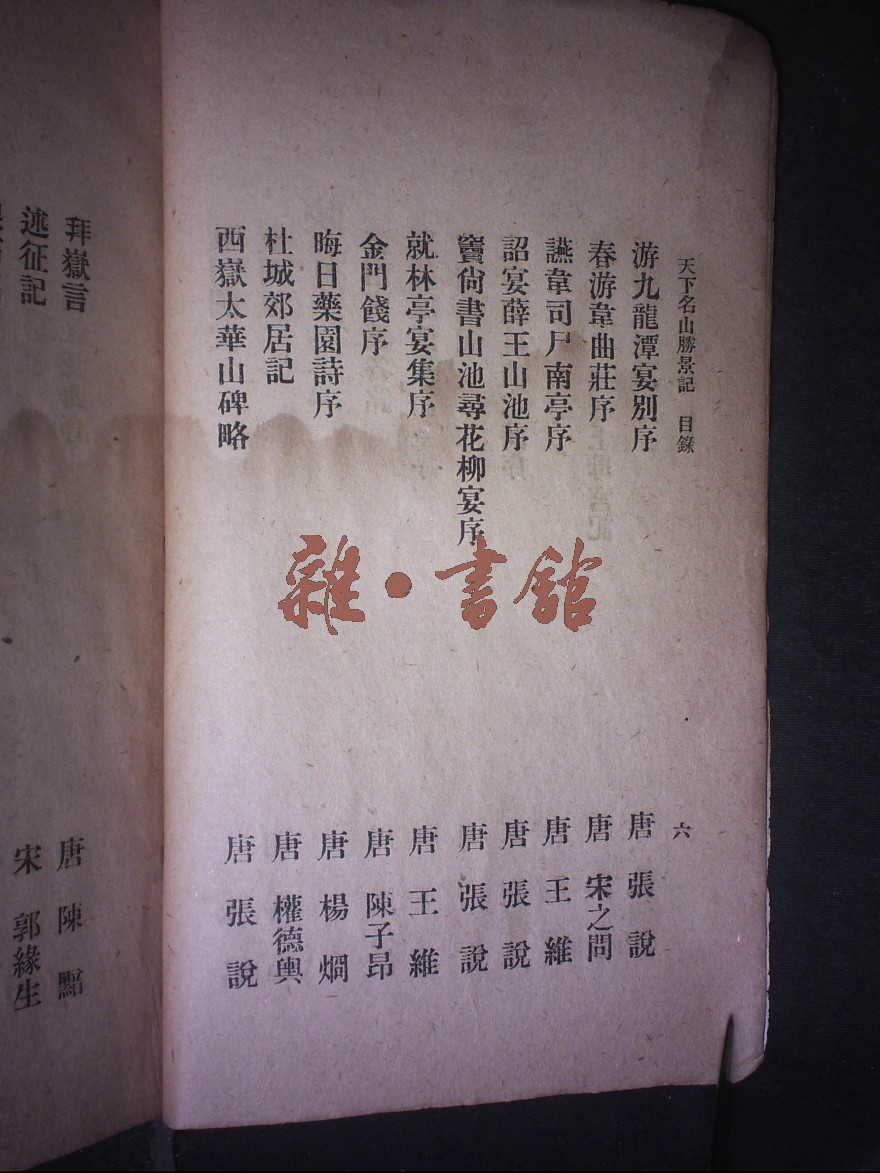 天下名山勝景記　目錄　六
游九龍潭宴別序　唐　張　說
春游韋曲莊序　唐　宋之問
讌韋司戶南亭序　唐　王　維
詔宴薛王山池序　唐　張　說
竇尙書山池尋花柳宴序　唐　張　說
就林亭宴集序　唐　王　維
金門餞序　唐　陳子昂
晦日藥園詩序　唐　楊　烱
杜城郊居記　唐　權德輿
西嶽太華山碑略　唐　張　說
拜嶽言　唐　陳　黯
述征記　宋　郭緣生
雜·書館